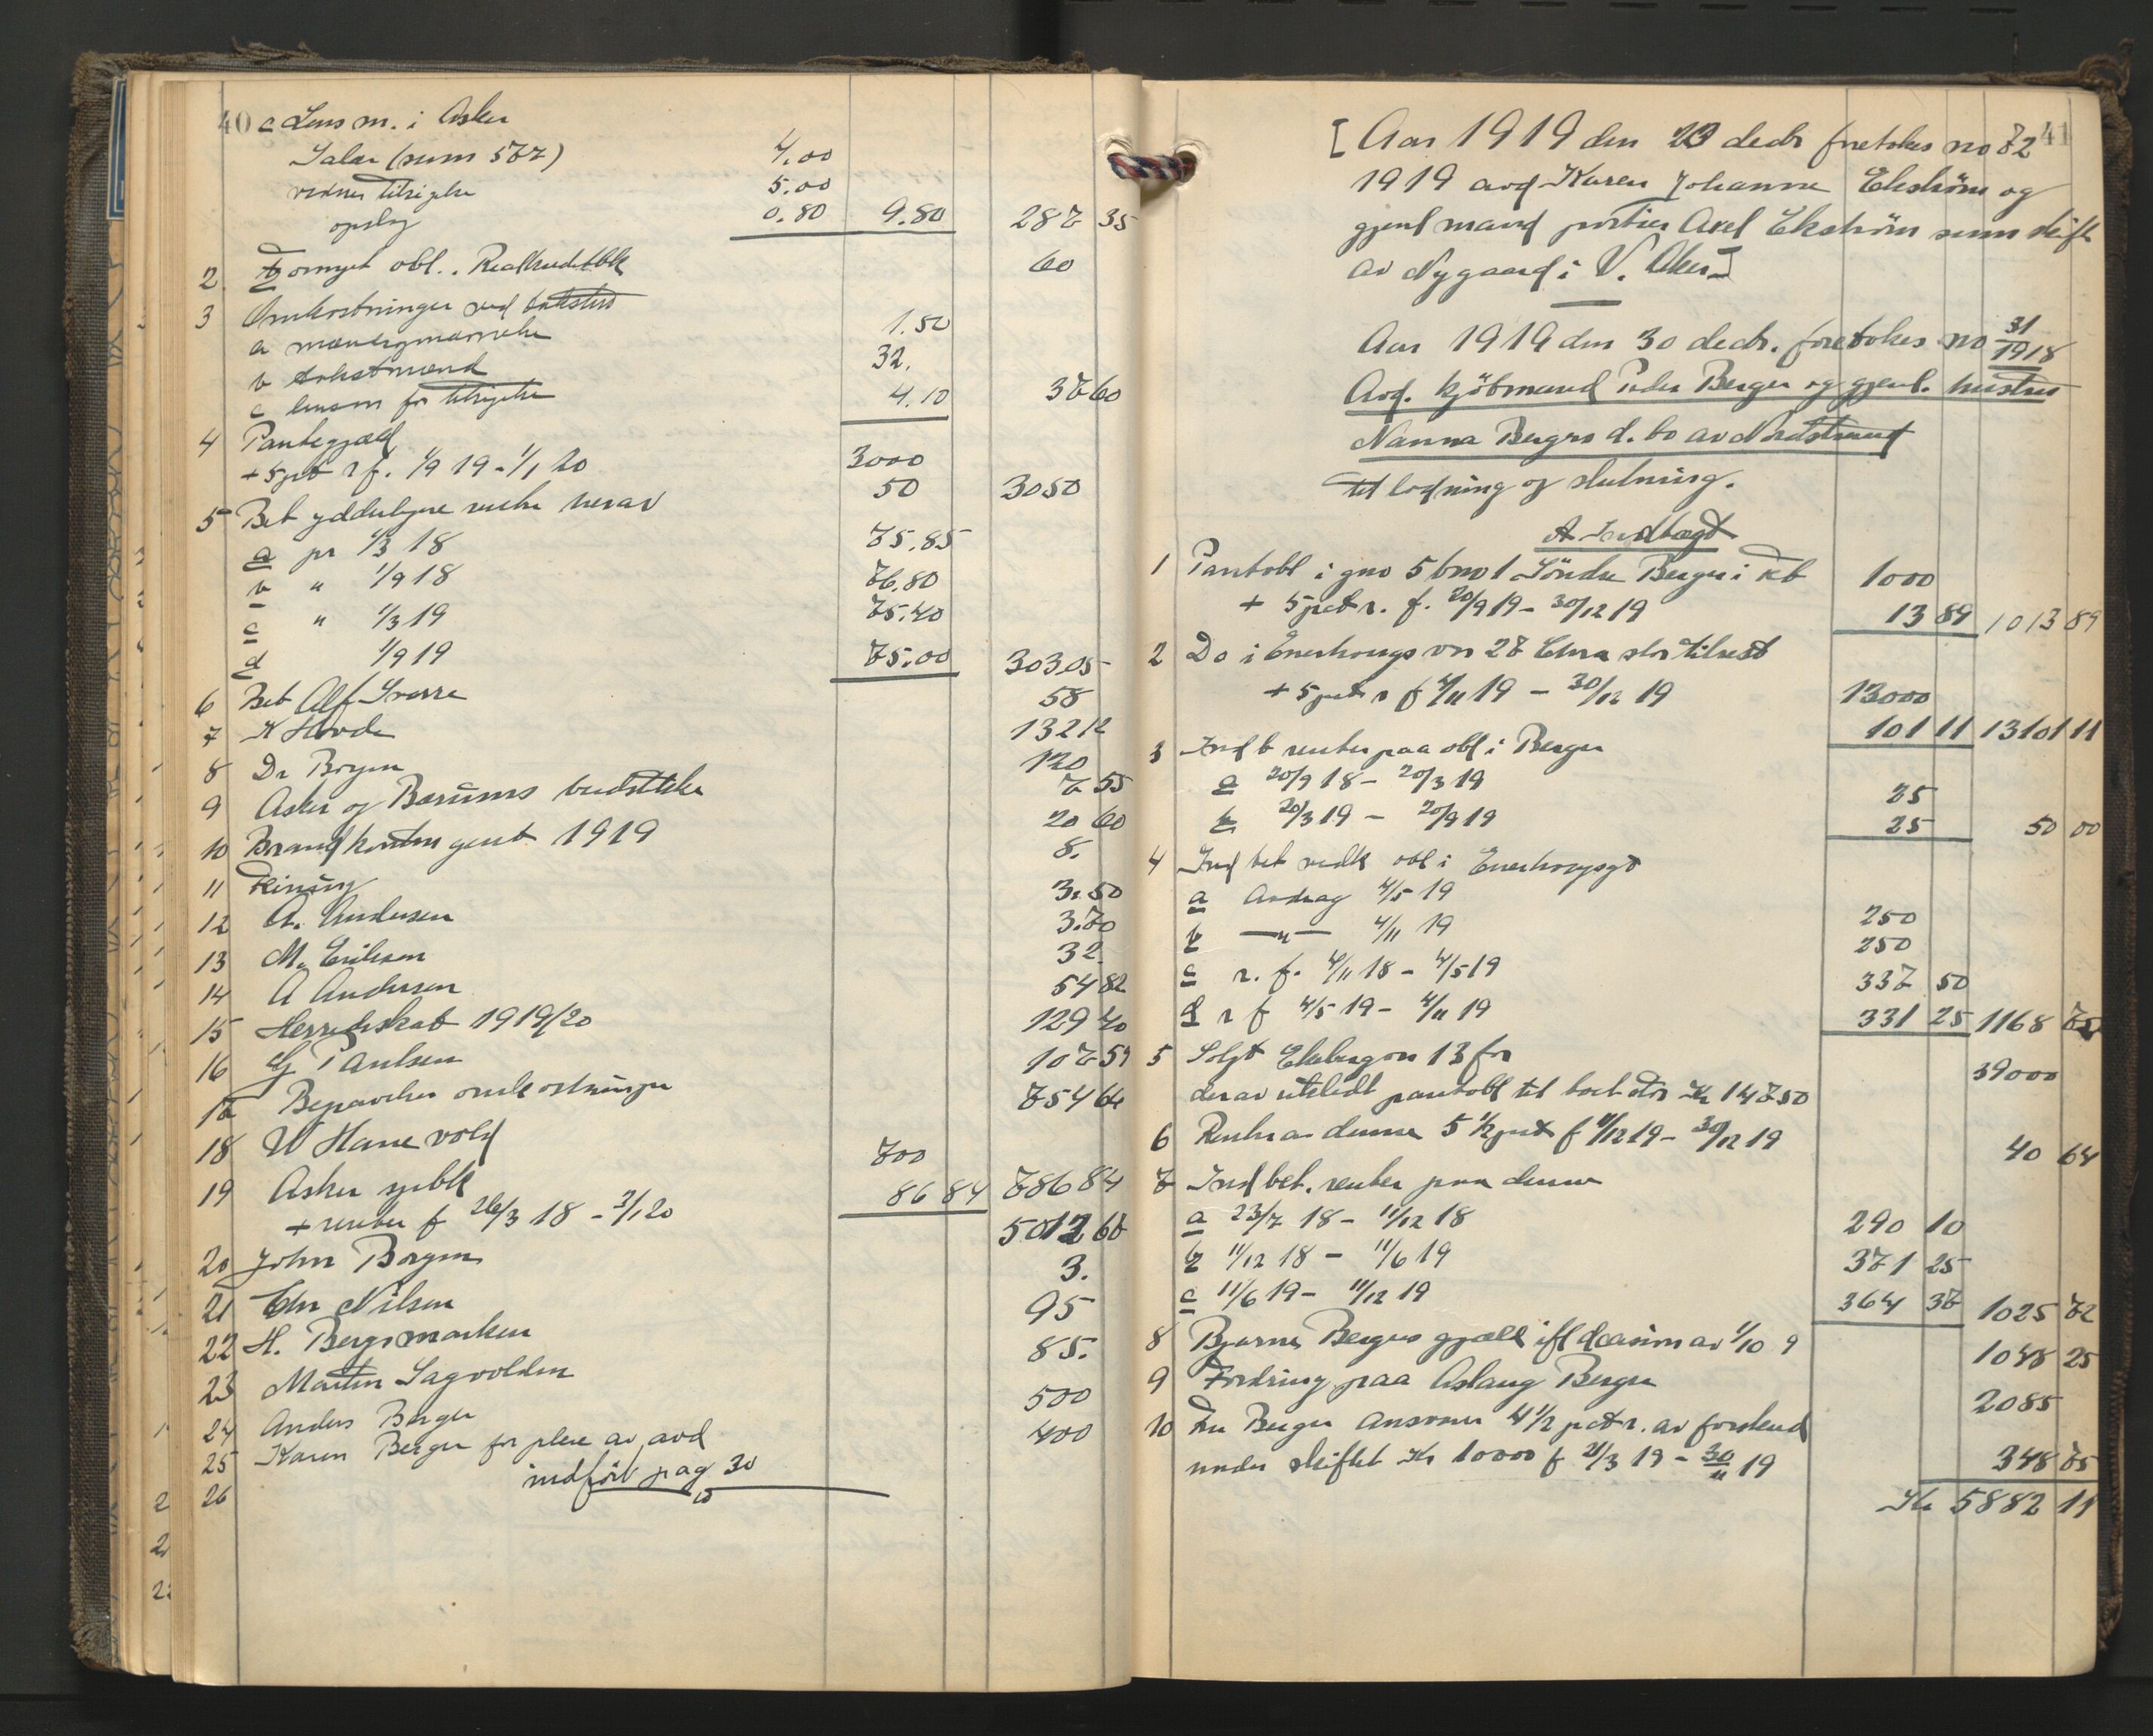 40 c Lensm. i Asker
Salær (sum 577) 4.00
videre tilsigelse 5.00
opslag 0.80 9.80 287 35
2 Fornyet obl. Realkreditbk 60
3 Omkostninger ved takstus
a 1.50
b takstmænd 32.
c lensm for tilsigelse 4.10 37 60
4 Pantegjæld 3000
+ 5 pct r f. 1/9 19 - 1/1 20 50 3050
5 Bet yderligere renter herav
a pr 1/3 18 75.85
b " 1/9 18 76.80
c " 1/3 19 75.40
d 1/9 19 75.00 303 05
6 Bet Alf 58
7 K Hovde 132 12
8 Dr Borgen 120
9 Asker og Bærums budstikke 7 55
10 Brandkontingent 1919 20 60
11 8.
12 A. Andersen 3.50
13 M. Eriksen 3.70
14 A Andersen 32.
15 Herredsskat 1919/20 54 82
16 G Paulsen 129 40
17 Begravelses omkostninger 107 59
18 W Hanevold 754 64
19 Asker spbk 700
+ renter f 26/3 18 - 2/1 20 86 84 786 84
20 John Borgen 5012 67
21 Chr Nilsen 3.
22 H. Bergsmarken 95
23 Martin Sagvolden 85.
24 Anders Berger 500
25 Karen Berger for pleie av avd 400
26 indført pag 30
41
[ Aar 1919 den 23 decbr foretokes no 72
1919 avd Karen Johanne Ekström og
gjenl mand portier Axel Ekström sum skifte
av Nygaard i V. Aker ]
Aar 1919 den 30 decbr. foretokes no 31/1918
Avd. kjöbmand Peder Berger og gjenl. hustru
Nanna Bergers d. bo av Nordstrand
til lodning og slutning.
A Indtægt
1 Pantobl i gno 5 bno 1 Söndre Berger i 1000
+ 5 pct r. f. 20/9 19 - 30/12 19 13 89 1013 89
2 Do i Enerhougs vei 27 Chra stor tilrest 13000
+ 5 pct r f 4/11 19 - 30/12 19 101 11 13101 11
3 Indb renter paa obl i Berger
a 20/9 18 - 20/3 19 25
b 20/3 19 - 20/9 19 25 50 00
4 Ind bet vedk obl i Enerhougsgt
a Avdrag 4/5 19 250
b —"— 4/11 19 250
c r. f. 4/11 18 - 4/5 19 337 50
d r f 4/5 19 - 4/11 19 331 25 1168 75
5 Solgt Ekebergvn 13 for 39000
derav utstedt pantobl til boet stor Kr 14750
6 Renter av denne 5 1/2 pct f 11/12 19 - 30/12 19 40 64
7 Indbet. renter paa denne
a 23/7 18 - 11/12 18 290 10
b 11/12 18 - 11/6 19 371 25
c 11/6 19 - 11/12 19 364 37 1025 72
8 Bjarne Bergers gjæld ifl decision av 1/10 9 1048 25
9 Fordring paa Aslaug Berger 2085
10 Fru Berger ansvarer 4 1/2 pct r. av forskud
under skiftet Kr 10000 f 21/3 19 - 30/11 19 348 75
Kr 5882 11